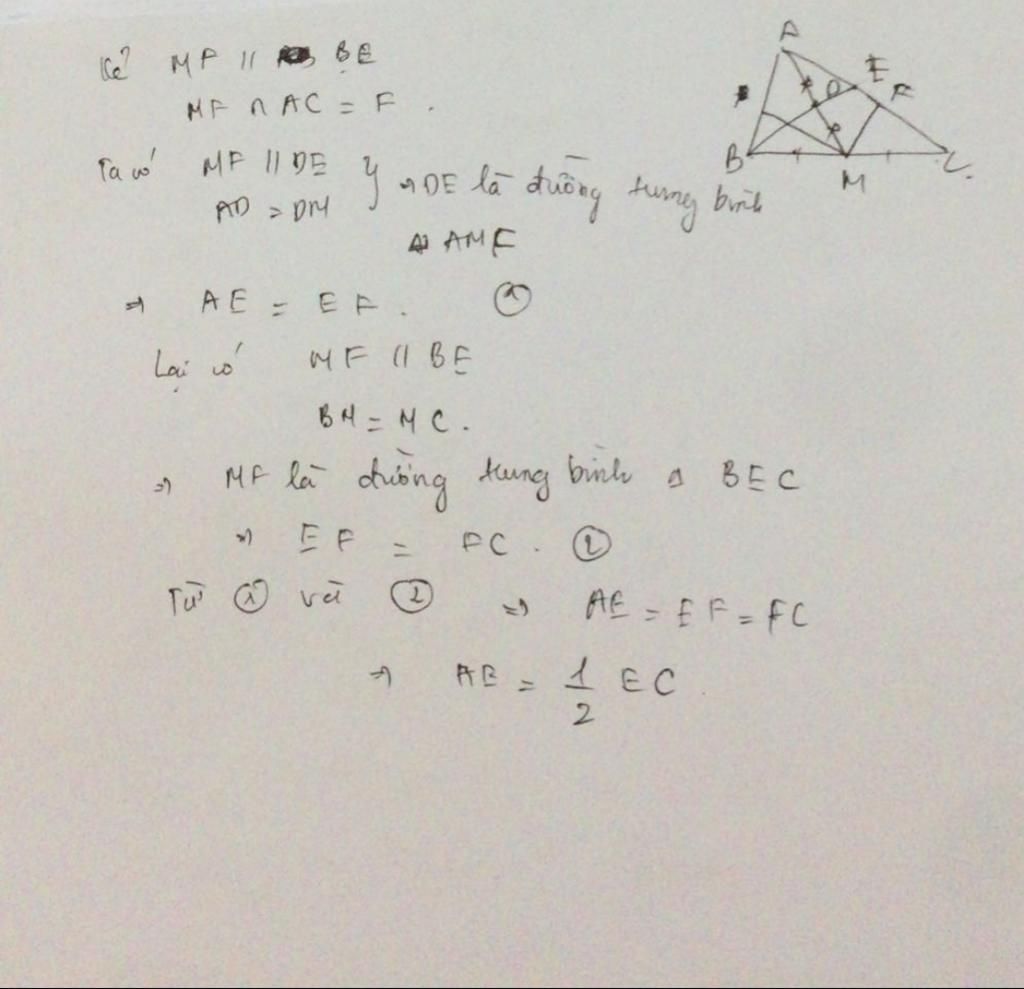 Kẻ MF // BE
MF ∩ AC = F .
Ta có MF // DE } ⇒ DE là đường trung bình
AD = DM
Δ AMF
⇒ AE = EF . ①
Lại có MF // BE
BM = MC .
⇒ MF là đường trung bình Δ BEC
⇒ EF = FC . ②
Từ ① và ② ⇒ AE = EF = FC
⇒ AE = 1/2 EC
A
E
D
F
B
M
C